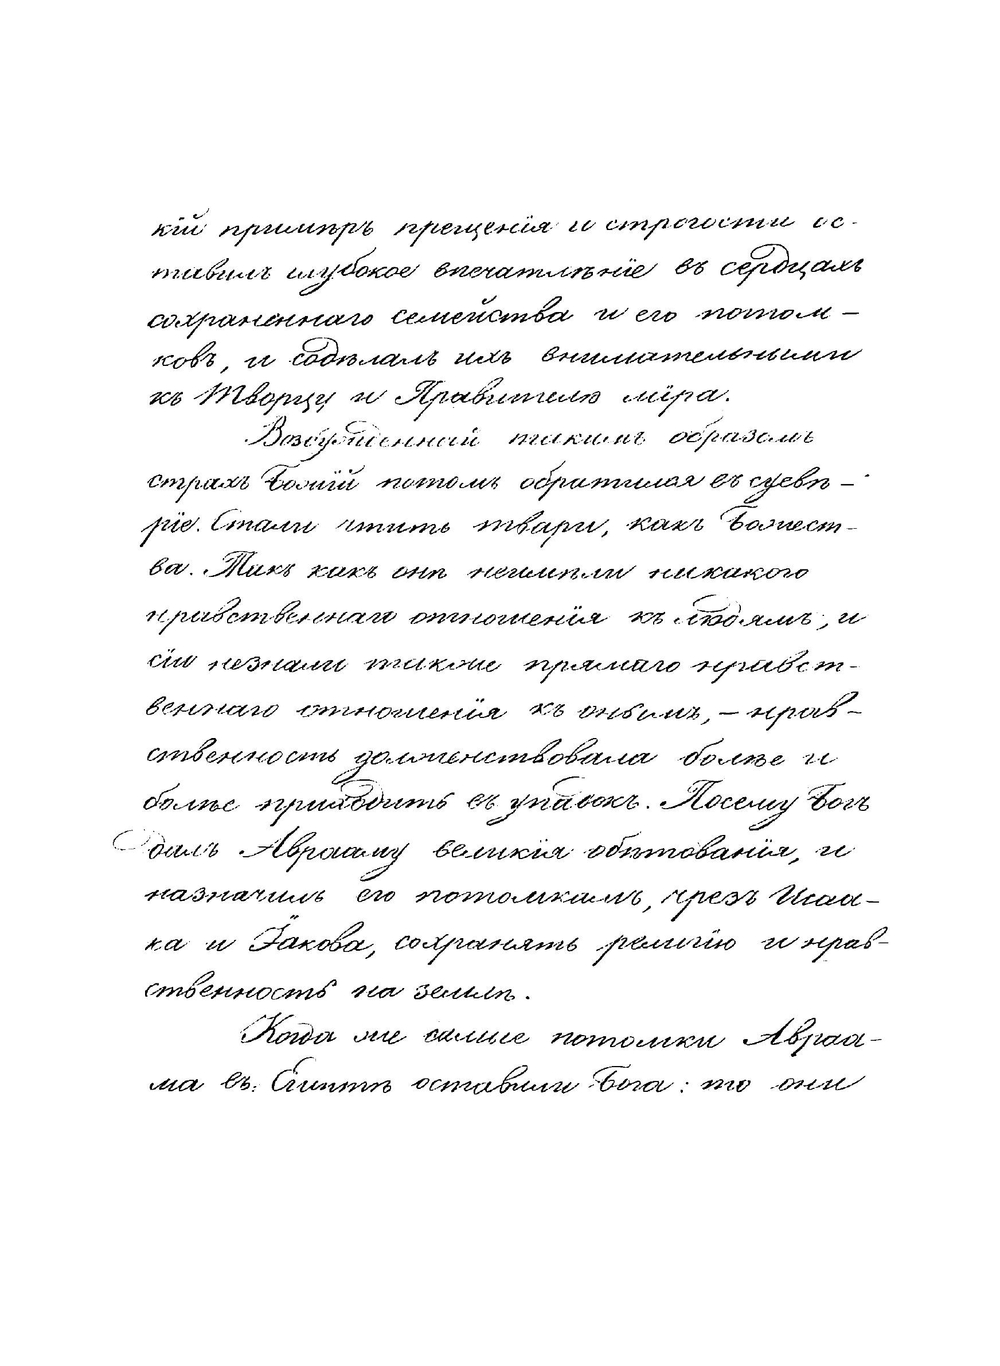 кій примѣръ прещенія и строгости ос-
тавилъ глубокое впечатлѣніе въ сердцахъ
сохраненнаго семейства и его потом-
ковъ, и содѣлалъ ихъ внимательными
къ Творцу и Правителю міра.
Возбужденный такимъ образомъ
страхъ Божій потомъ обратился въ суевѣ-
ріе. Стали чтить твари, какъ Божест-
ва. Такъ какъ онѣ неимѣли никакого
нравственнаго отношенія къ людямъ, и
сіи незнали также прямаго нравст-
веннаго отношенія къ онымъ, - нрав-
ственность долженствовала болѣе и
болѣе приходить въ упадокъ. Посему Богъ
далъ Аврааму великія обѣтованія, и
назначилъ его потомкамъ, чрезъ Исаа-
ка и Іакова, сохранять религію и нрав-
ственность на землѣ.
Когда же самые потомки Авраа-
ма въ Египтѣ оставили Бога: то они